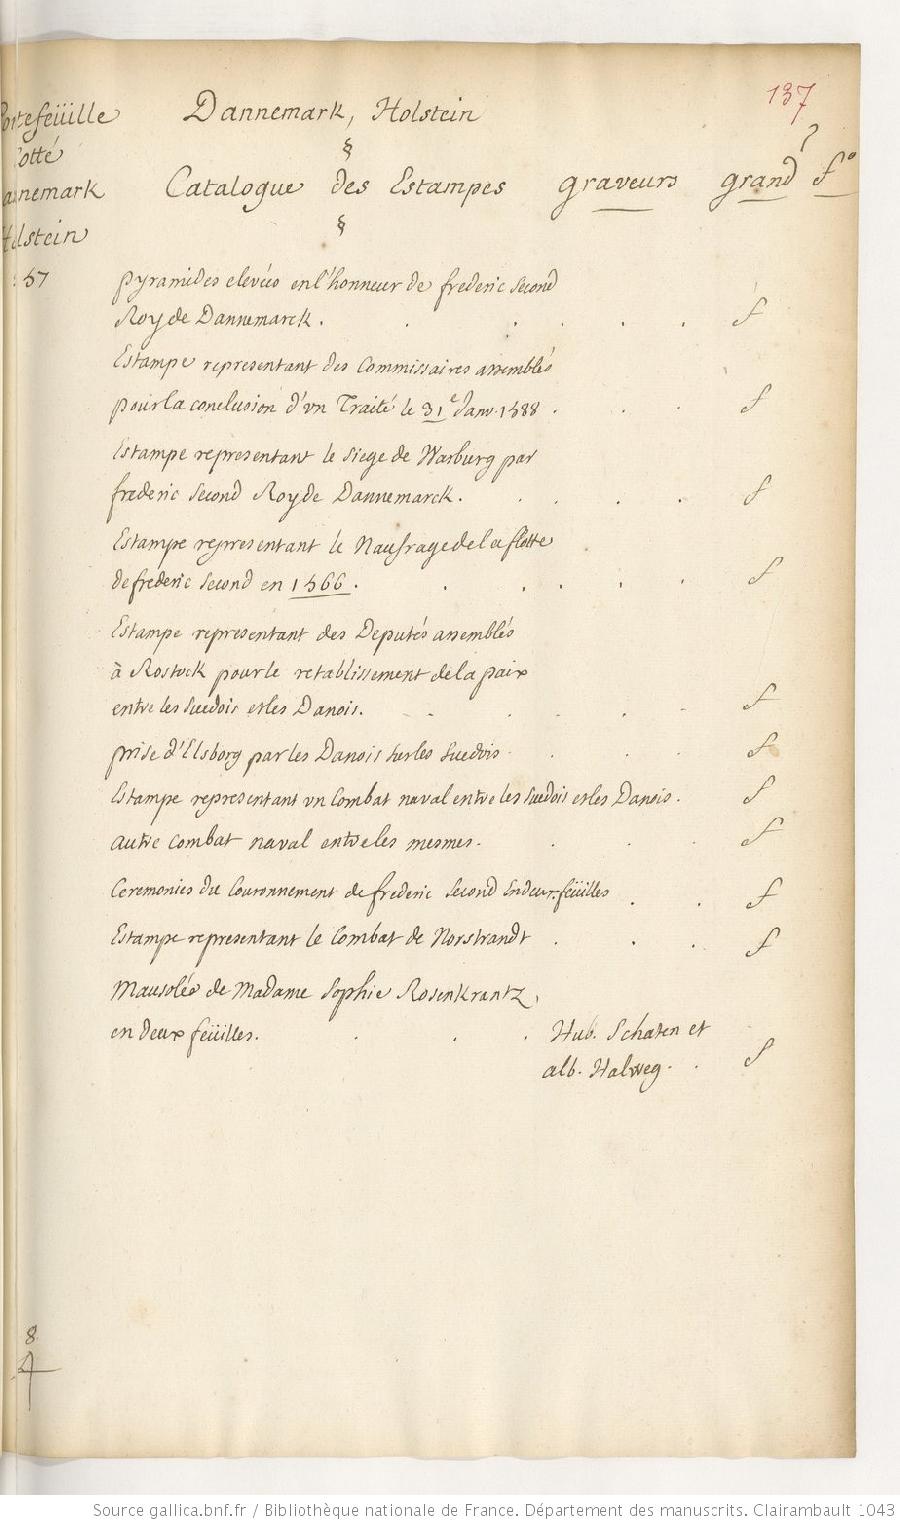 137
Portefeüille
Cotté
Dannemark
Holstein
57
Dannemark, Holstein
§
Catalogue des Estampes graveurs grand fo
§
pyramides elevées en l'honneur de frederic second
Roy de Dannemarck. f
Estampe representant des Commissaires assemblés
pour la conclusion d'vn Traité le 31e Janv. 1588. f
Estampe representant le siege de Warburg par
frederic second Roy de Dannemarck. f
Estampe representant le Naufrage de la flotte
de frederic second en 1566. f
Estampe representant des Deputés assemblés
à Rostock pour le retablissement de la paix
entre les suedois et les Danois. f
prise d'Elsborg par les Danois sur les suedois f
Estampe representant vn Combat naval entre les suedois et les Danois. f
autre combat naval entre les mesmes. f
Ceremonies du Couronnement de frederic second en deux feüilles f
Estampe representant le Combat de Norstrandt f
Mausolée de Madame Sophie Rosenkrantz,
en deux feüilles. Hub. Schaten et
alb. Halweg. f
8
4
Source gallica.bnf.fr / Bibliothèque nationale de France. Département des manuscrits. Clairambault 1043